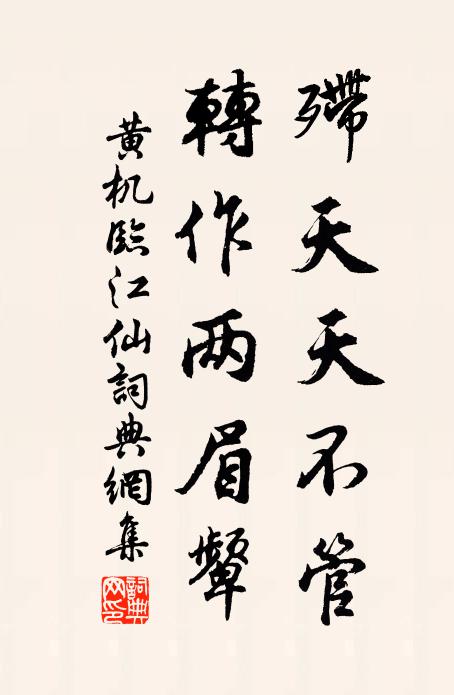 殢天天不管
轉作两眉顰
黄机臨江仙詞典網集
詞典網印